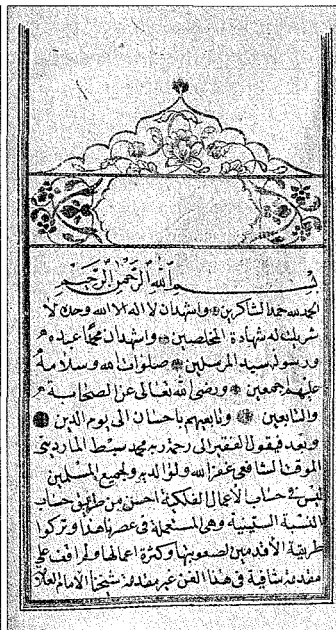 بسم الله الرحمن الرحيم
الحمد لله حمد الشاكرين واشهد ان لا اله الا الله وحده لا
شريك له شهادة المخلصين واشهد ان محمدا عبده
ورسوله سيد المرسلين صلوات الله وسلامه
عليهم اجمعين ورضي الله تعالى عن الصحابة
والتابعين وتابعيهم باحسان الى يوم الدين
وبعد فيقول الفقير الى رحمة ربه محمد سبط المارديني
الموقت الشافعي غفر الله ولوالديه ولجميع المسلمين
ليس في حساب الاعمال الفلكية احسن من طريق حساب
النسبة الستينية وهي المستعملة في عصرنا هذا وتركوا
طريقة الأقدمين لصعوبتها وكثرة اعمالها ولم اقف على
مقدمة شافية في هذا الفن غير مقدمة شيخنا الامام العلا